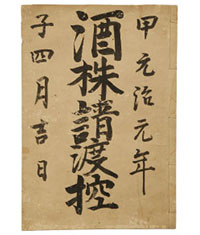 甲元治元年
酒株請渡控
子四月吉日